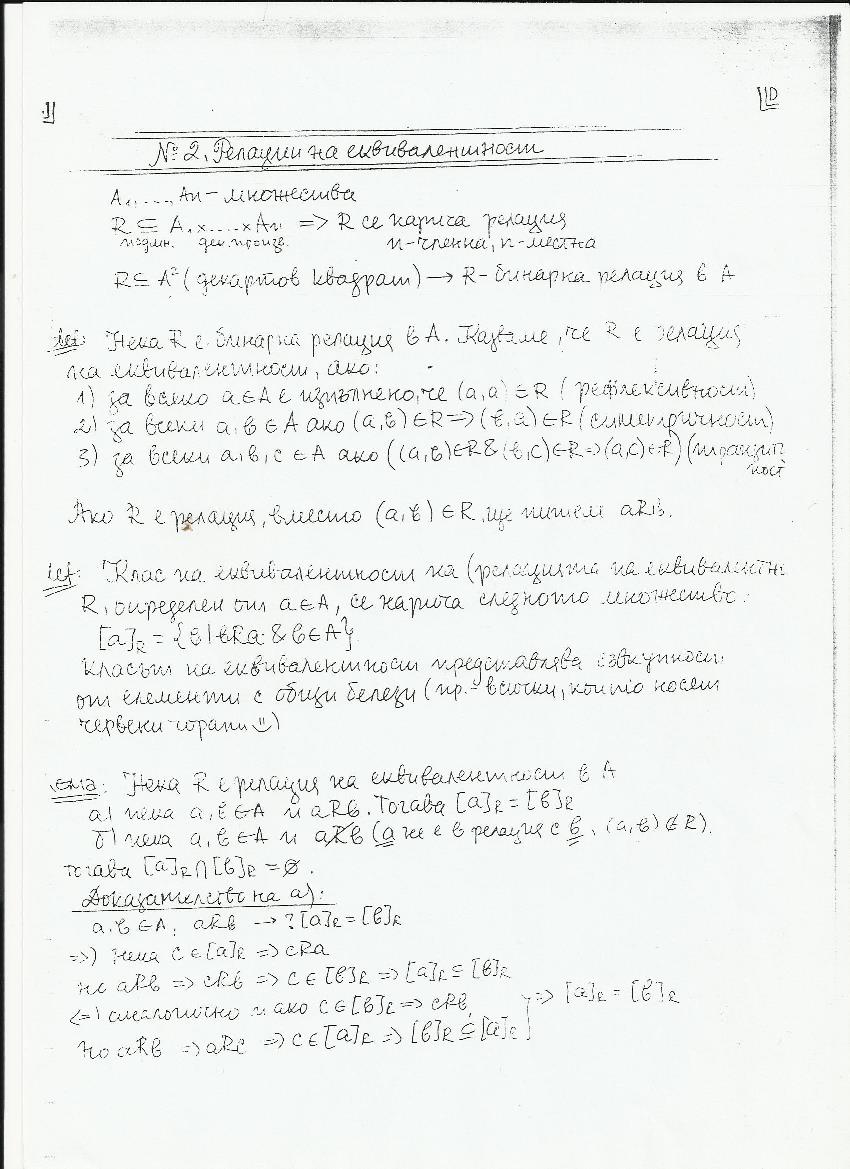 1
№ 2. Релации на еквивалентност
A₁, ..., An – множества
R ⊆ A₁ x ... x An => R се нарича релация
подмн. дек. произв. n-членна, n-местна
R ⊆ A² (декартов квадрат) → R – бинарна релация в A
def: Нека R е бинарна релация в A. Казваме, че R е релация
на еквивалентност, ако:
1) за всяко a ∈ A е изпълнено, че (a, a) ∈ R (рефлексивност)
2) за всеки a, b ∈ A ако (a, b) ∈ R => (b, a) ∈ R (симетричност)
3) за всеки a, b, c ∈ A ако ((a, b) ∈ R & (b, c) ∈ R => (a, c) ∈ R) (транзит
ност
Ако R е релация, вместо (a, b) ∈ R, ще пишем aRb.
def: Клас на еквивалентност на (релацията на еквивалентно
R, определен от a ∈ A, се нарича следното множество:
[a]R = {b | bRa & b ∈ A}
Класът на еквивалентност представлява съвкупност
от елементи с общи белези (пр. – всички, които носят
червени чорапи ☺)
ема: Нека R е релация на еквивалентност в A
а) нека a, b ∈ A и aRb. Тогава [a]R = [b]R
б) нека a, b ∈ A и aR̸b (a не е в релация с b, (a, b) ∉ R).
тогава [a]R ∩ [b]R = ∅.
Доказателство на а):
a, b ∈ A, aRb → ? [a]R = [b]R
=>) Нека c ∈ [a]R => cRa
но aRb => cRb => c ∈ [b]R => [a]R ⊆ [b]R
<=) аналогично и ако c ∈ [b]R => cRb, } => [a]R = [b]R
но aRb => aRc => c ∈ [a]R => [b]R ⊆ [a]R